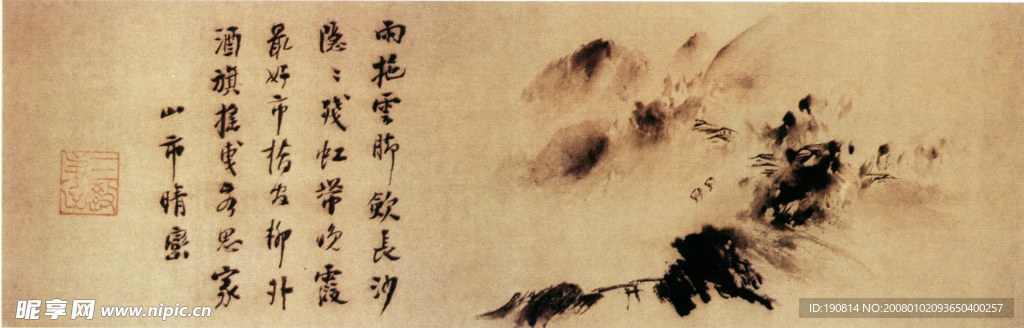 雨拖雲脚斂長沙
隐〻残虹帶晚霞
最好市橋官柳外
酒旗搖曳客思家
山市晴巒
昵享网 www.nipic.cn
ID:190814 NO:20080102093650400257